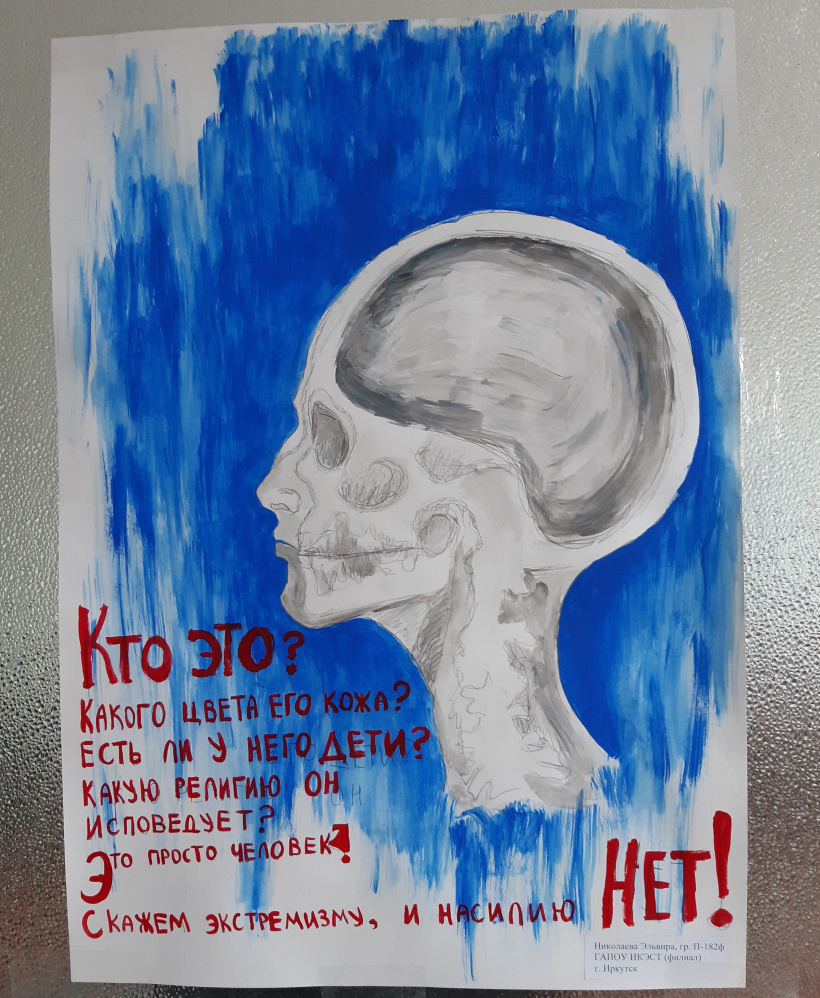 Кто это?
Какого цвета его кожа?
Есть ли у него дети?
Какую религию он
исповедует?
Это просто человек!
Скажем экстремизму, и насилию НЕТ!
Николаева Эльвира, гр. П-182ф
ГАПОУ ИКЭСТ (филиал)
г. Иркутск